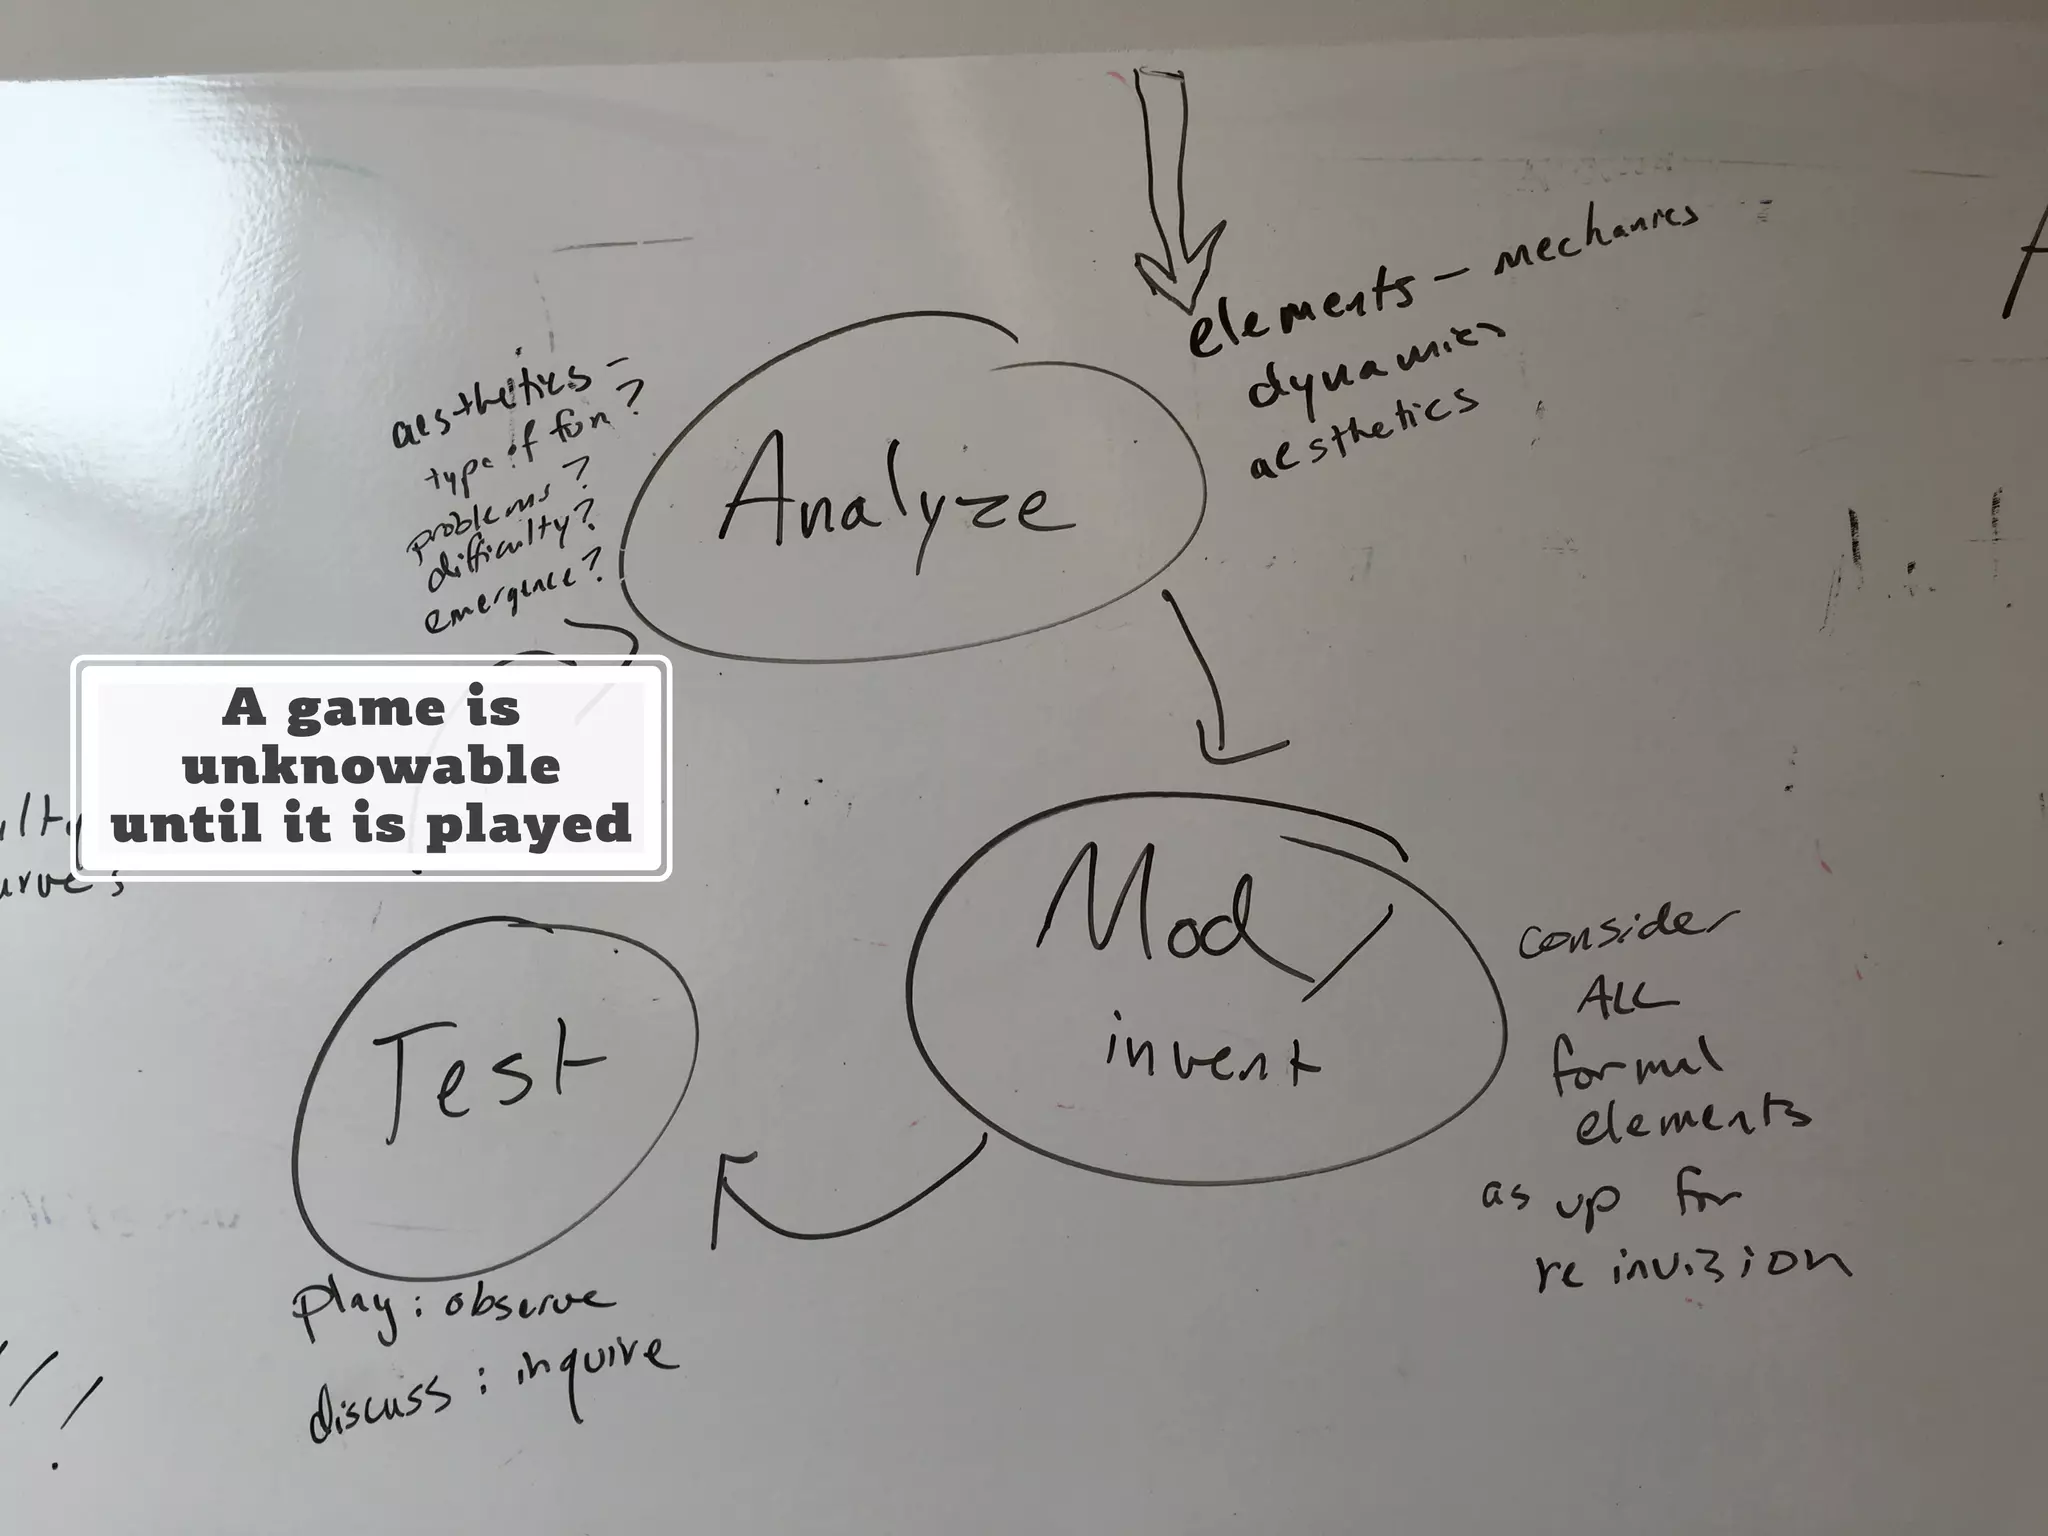 elements - mechanics
dynamics
aesthetics
aesthetics -
type of fun?
problems?
difficulty?
emergence?
Analyze
A game is
unknowable
until it is played
Mod
invent
consider
ALL
formal
elements
as up for
re invizion
Test
play: observe
discuss: inquire